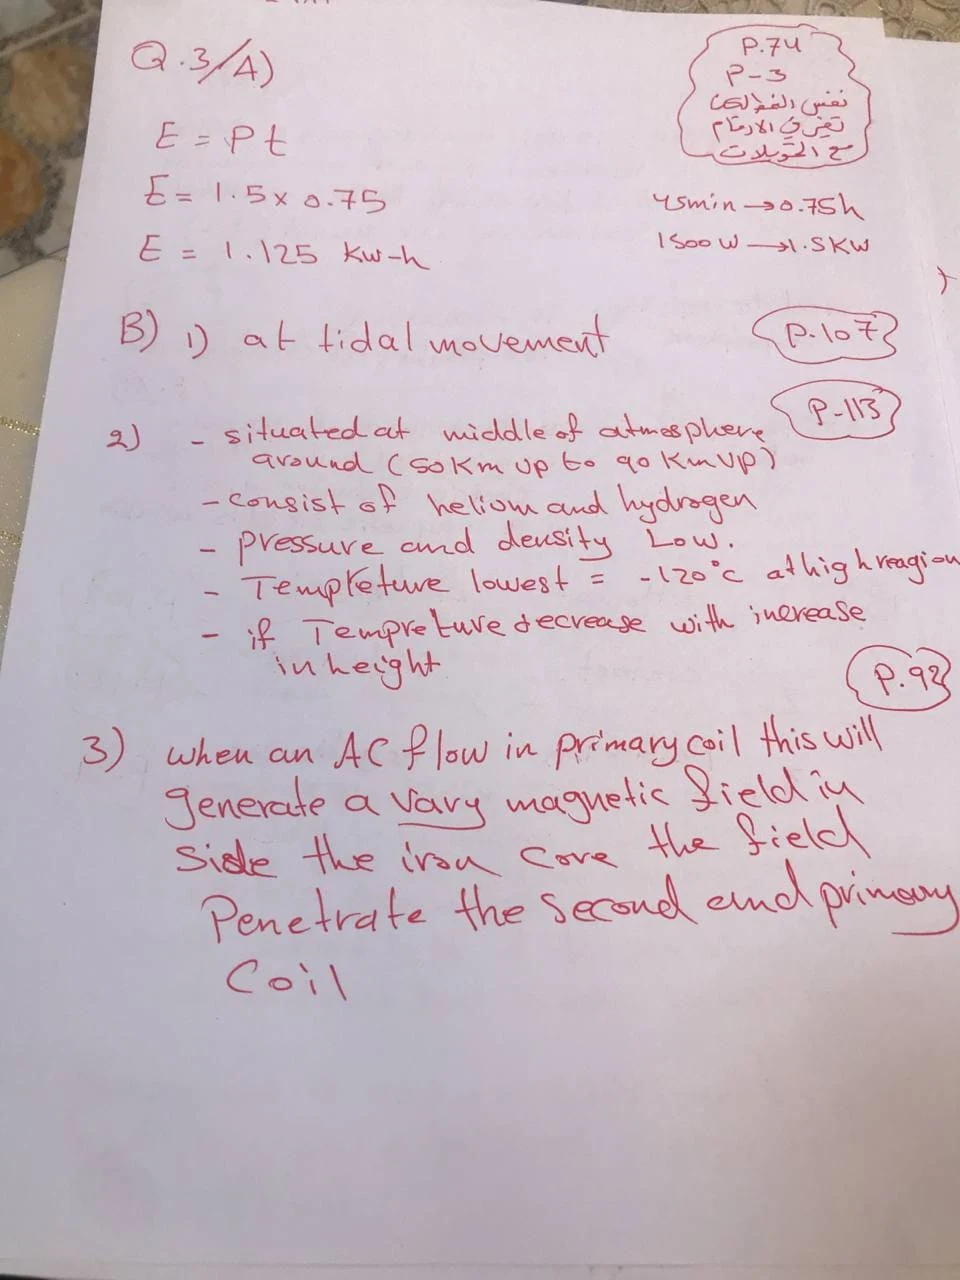 Q.3/A)
P.74
P-3
نفس الفكرة
تغير في الارقام
مع التحويلات
E = Pt
E = 1.5 x 0.75
45min → 0.75h
E = 1.125 Kw-h
1500 W → 1.5 KW
B) 1) at tidal movement
P.107
P-113
2) - situated at middle of atmosphere
around (50 Km up to 90 Km UP)
- consist of helium and hydrogen
- Pressure and density Low.
- Tempreture lowest = -120°c at high reagion
- if Tempreture decrease with increase
in height
P.92
3) when an AC flow in primary coil this will
generate a vary magnetic field in
side the iron core the field
Penetrate the second and primary
Coil